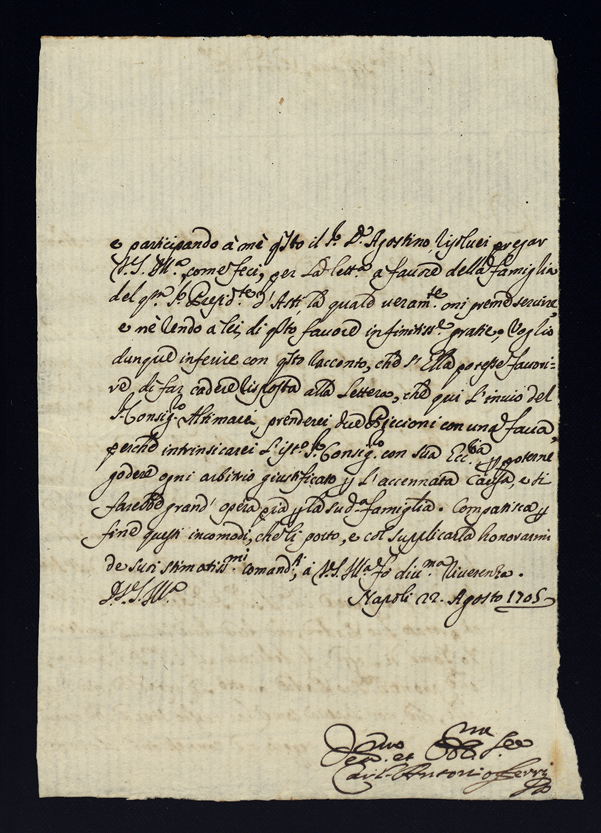 e participando à me q'sto il S.r D. Agostino, risoluei pregar
V.S. Ill.a, come feci, per la lett.a a fauore della famiglia
del q.m S.r Presid.te d'Asti, la quale ueram.te mi preme seruire
e nè rendo a lei, di q'sto fauore infinitiss.e gratie, Voglio
dunque inferire con q'sto racconto, che s'Ella potesse fauori-
re, di far cadere risposta alla lettera, che qui l'inuio del
S.r Consig.o Altimari, prenderei due Piccioni con una faua
perche intrinsicarei l'ist.o S.r Consig.o con sua Ecc.za
godere ogni arbitrio giustificato l'accennata Causa, e si
farebbe grand'opera pia la sud.a famiglia. Compatisca
fine questi incomodi, che li porto, e col supplicarla honorarmi
de suoi stimatiss.mi comandi, à V.S. Ill.a fò diu.ma riuerenza.
D.V.S. Ill.a Napoli 22. Agosto 1705
Deu.mo et Obl.mo Se.re
Antonio Ferri